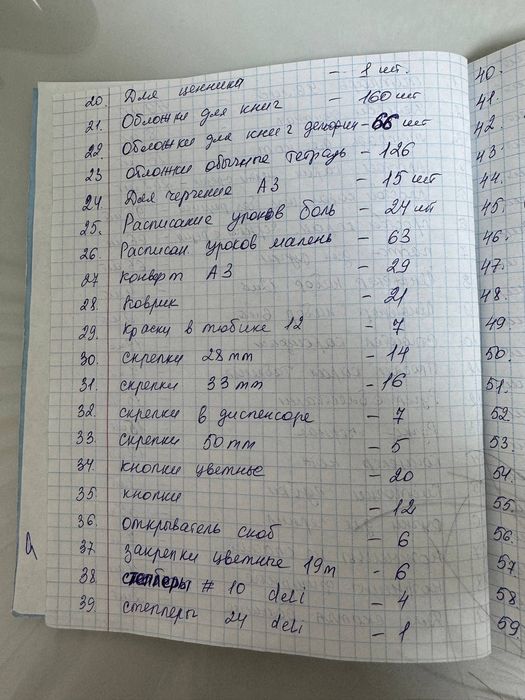 20. Для ценника - 1 шт.
21. Обложки для книг - 160 шт
22. Обложки для книг - 66 шт
23 обложки обычные тетрадь - 126
24 Для черчение А3 - 15 шт
25. Расписание уроков боль - 24 шт
26. Расписан уроков мален - 63
27 конверт А3 - 29
28. Коврик - 21
29. краски в тюбике 12 - 7
30. скрепки 28 mm - 14
31. скрепки 33 mm - 16
32. скрепки в диспенсоре - 7
33. скрепки 50 mm - 5
34. кнопки цветные - 20
35. кнопки - 12
36. открыватель скоб - 6
37. закрепки цветные 19m - 6
38. степлеры # 10 deli - 4
39. степлеры 24 deli - 1
40.
41.
42
43
44.
45.
46.
47.
48.
49
50.
51.
52.
53.
54.
55.
56.
57.
58
59